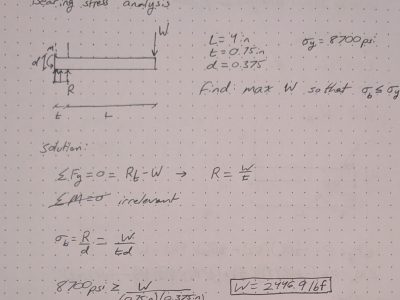 Bearing stress analysis
W
L = 4 in
t = 0.75in
d = 0.375
σy = 8700 psi
m
d
R
t L
Find: max W so that σb ≤ σy
Solution:
ΣFy = 0 = Rt - W → R = W/t
ΣM = 0 irrelevant
σb = R/d = W/td
8700 psi ≥ W/(0.75in)(0.375in)
W = 2446.9 lbf